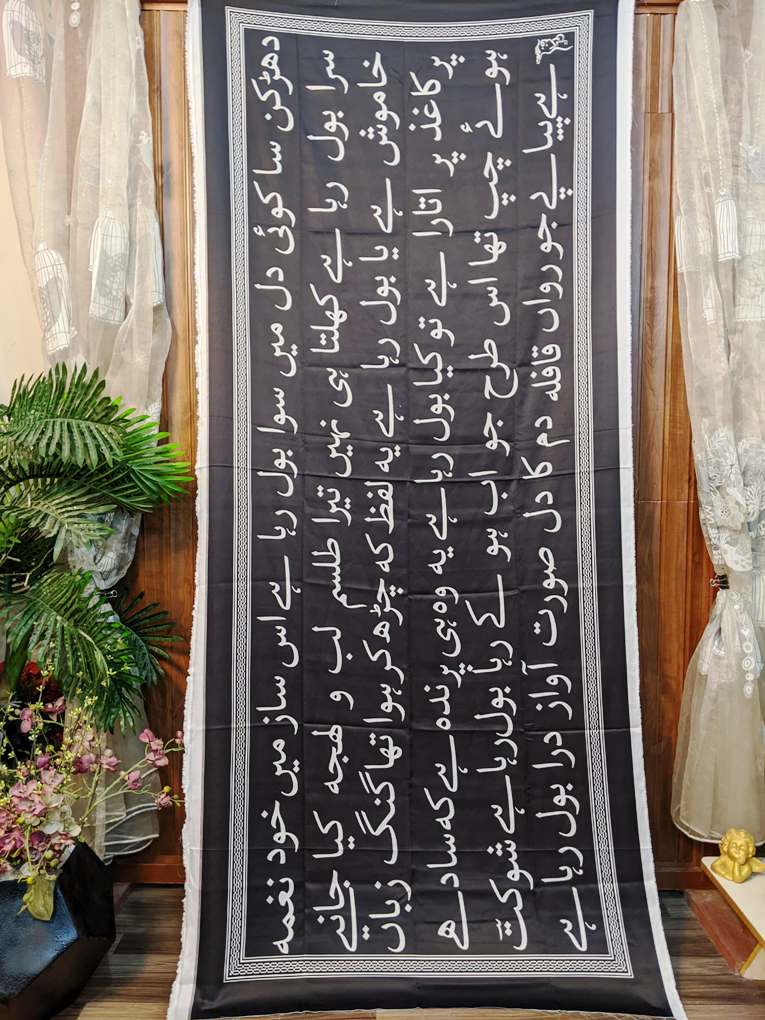 دھڑکن سا کوئی دل میں سوا بول رہا ہے اس ساز میں خود نغمہ
سرا بول رہا ہے کھلتا ہی نہیں تیرا طلسم لب و لہجہ کیا جانیے
خاموش ہے یا بول رہا ہے یہ لفظ کہ چڑھ کر ہوا تھا گنگ زباں
پر کاغذ پر اتارا ہے تو کیا بول رہا ہے یہ وہ ہی پرندہ ہے کہ سادھے
ہوئے چپ تھا اس طرح جو اب ہو کے رہا بول رہا ہے شوکت
ہے پیاپے جو رواں قافلہ دم کا دل صورت آواز درا بول رہا ہے